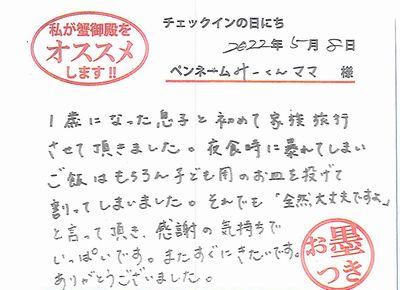 私が蟹御殿を
オススメ
します!!
チェックインの日にち
2022年5月8日
ペンネームみーくんママ 様
1歳になった息子と初めて家族旅行
させて頂きました。夜食時に暴れてしまい
ご飯はもちろん子ども用のお皿を投げて
割ってしまいました。それでも「全然大丈夫ですよ」
と言って頂き、感謝の気持ちで
いっぱいです。またすぐにきたいです。
ありがとうございました。
お墨
つき